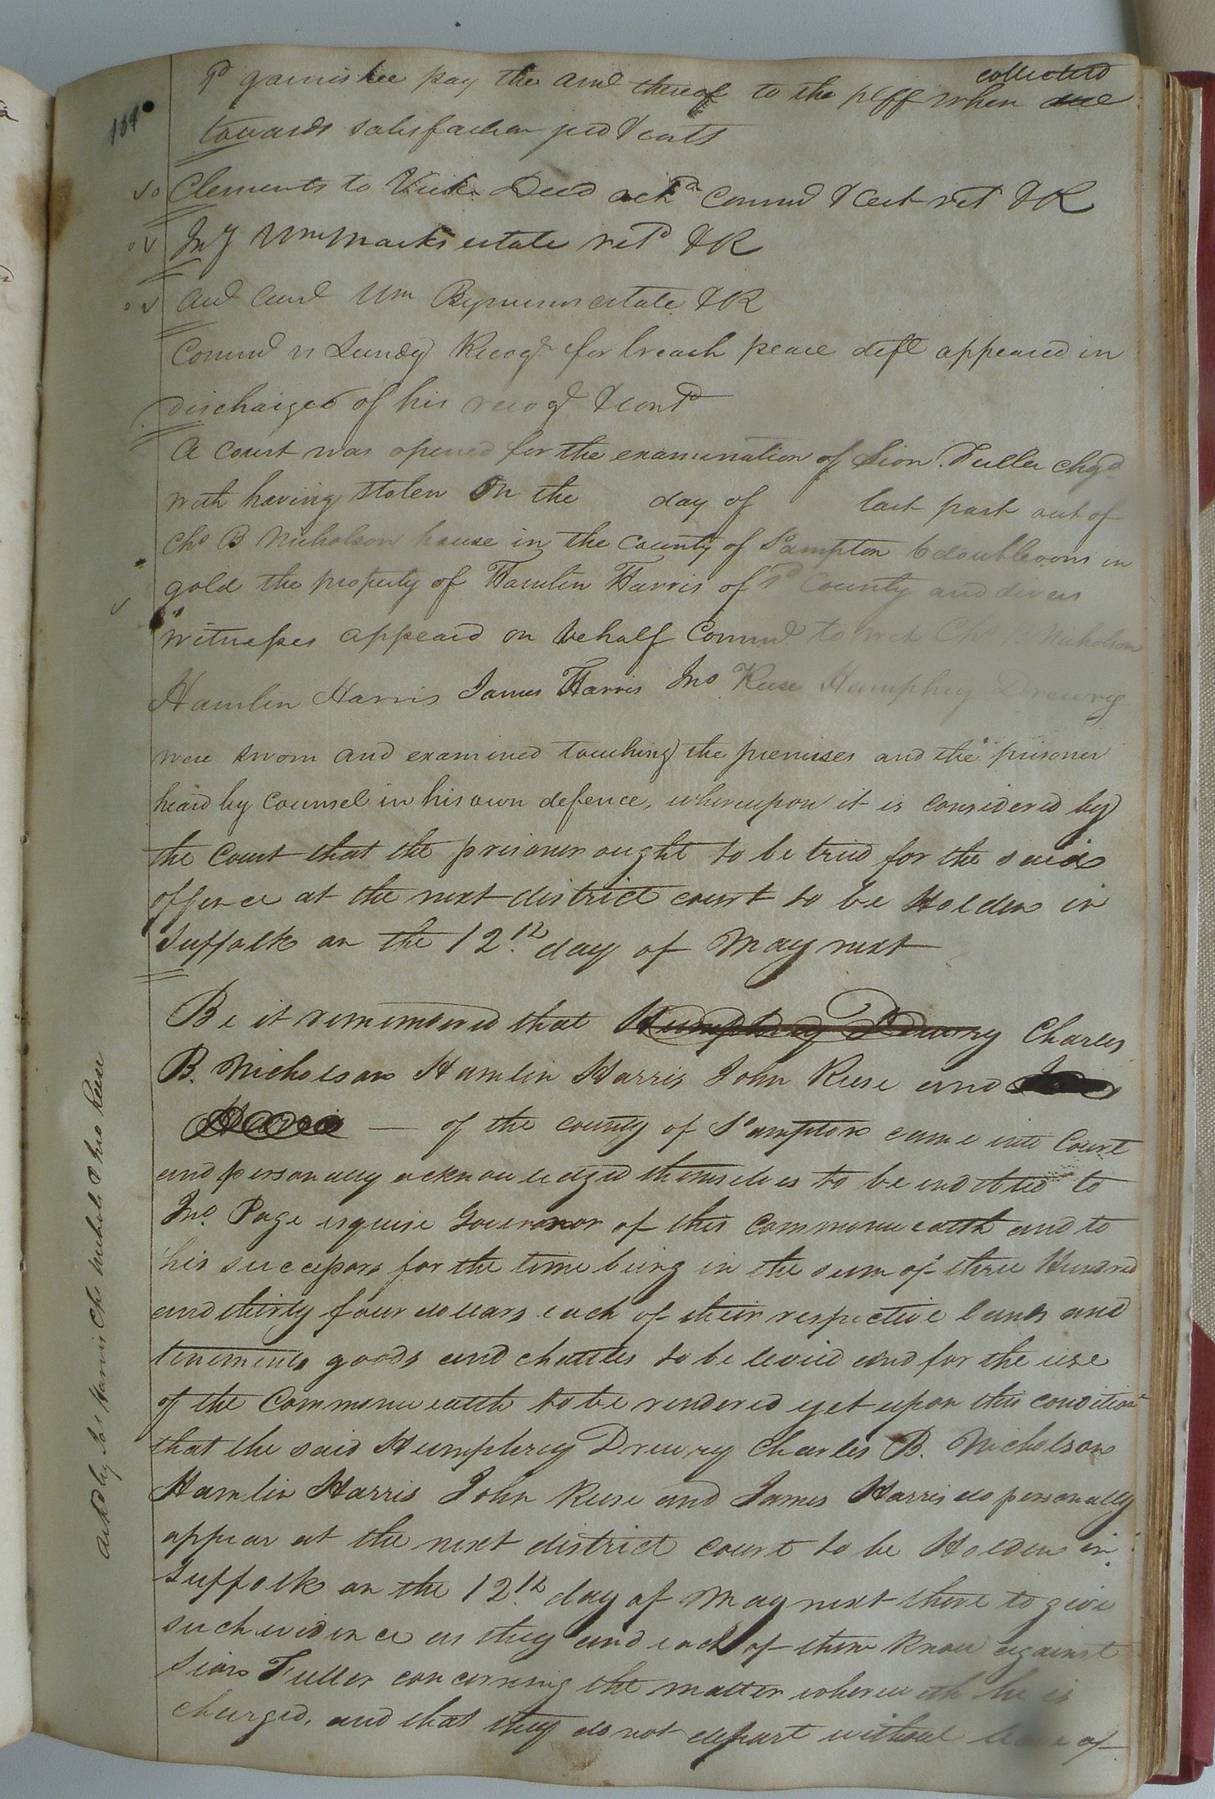 184
collected
Sd garnishee pay the amt thereof to the plff when due
towards satisfaction jud & costs
Clements to Deed ackd Commd & Cert retd & R
Inv Wm Marks estate retd & R
Aud Curt Wm Bynum estate & R
Commd vs Lundy Recogt for breach peace deft appeared in
discharged of his recogt & contd
A court was opened for the examination of Sion Fuller chgd
with having stolen On the day of last past out of
Chs B Nicholson house in the County of S'ampton 6 doubloons in
gold the property of Hamlin Harris of sd County and divers
witnesses appeard on behalf Commd to wit Chs Nicholson
Hamlin Harris James Harris Jno Reese Humphrey Drewry
were sworn and examined touching the premises and the prisoner
heard by Counsel in his own defence, whereupon it is considered by
the Court that the prisoner ought to be tried for the said
offence at the next district court to be Holden in
Suffolk on the 12th day of May next
Be it remembered that Humphrey Drewry Charles
B. Nicholson Hamlin Harris John Reese and
Harris — of the county of S'ampton came into Court
and personally acknowledged themselves to be indebted to
Jno. Page esquire Governor of this Commonwealth and to
his successors for the time being in the sum of three Hundred
and thirty four dollars each of their respective lands and
tenements goods and chattles to be levied and for the use
of the Commonwealth to be rendered yet upon this condition
that the said Humphrey Drewry Charles B. Nicholson
Hamlin Harris John Reese and James Harris do personally
appear at the next district court to be Holden in
Suffolk on the 12th day of May next there to give
such evidence as they and each of them know against
Sion Fuller concerning the matter wherewith he is
charged, and that they do not depart without leave of
ackd by Js Harris Chs Nichols & Jno Reese